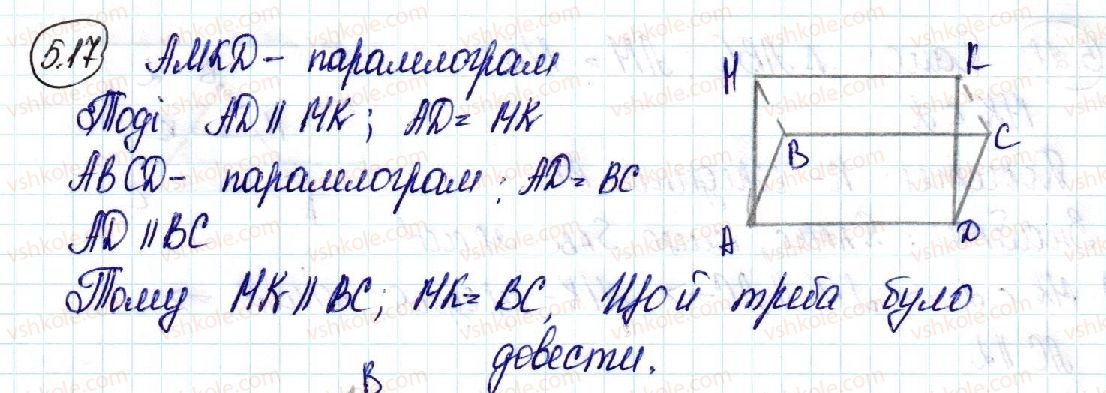 5.17 АМКD – паралелограм
Тоді AD || MK; AD = MK
ABCD – паралелограм: AD = BC
AD || BC
Тому MK || BC; MK = BC, Що й треба було
довести.
M K
B C
A D
B